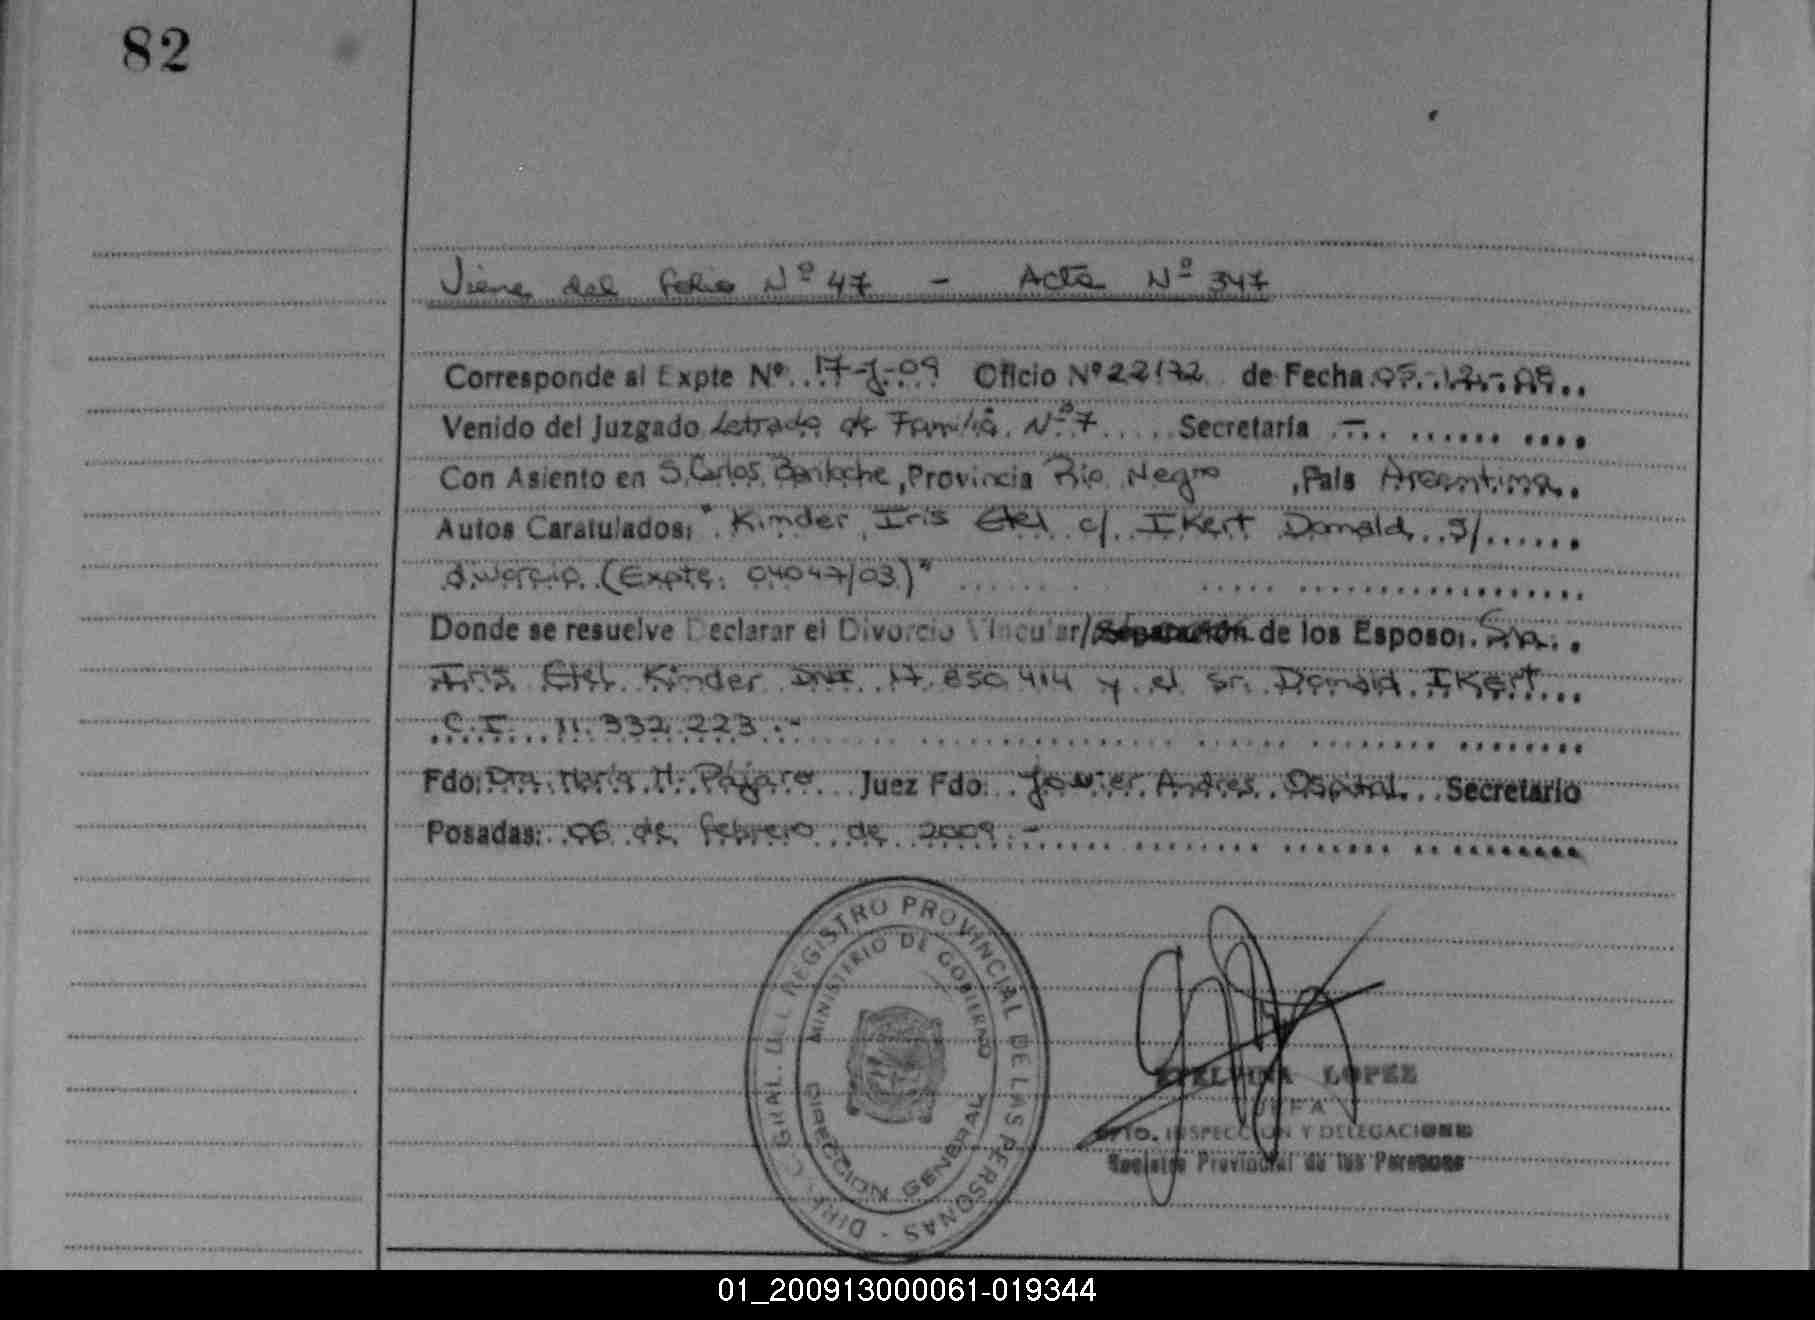 82
Viene del folio Nº 47 - Acta Nº 347
Corresponde al Expte Nº. 17-J-09 Oficio Nº 22172 de Fecha 05-12-08
Venido del Juzgado Letrado de Familia Nº 7 Secretaría -
Con Asiento en S. Carlos Bariloche, Provincia Río Negro, País Argentina.
Autos Caratulados: "Kinder, Iris Etel c/ Ikert Donald s/
divorcio (Expte. 04047/03)"
Donde se resuelve Declarar el Divorcio Vincular/Separación de los Esposo: Sra.
Iris Etel Kinder DNI 17.850.414 y el Sr. Donald Ikert
C.I. 11.332.223.-
Fdo: Dra. María M. Pájaro Juez Fdo: Javier Andres Ospital Secretario
Posadas: 06 de febrero de 2009.-
DIREC. GRAL. DEL REGISTRO PROVINCIAL DE LAS PERSONAS -
MINISTERIO DE GOBIERNO
DIRECCION GENERAL
LOPEZ
JEFA
DPTO. INSPECCION Y DELEGACIONES
Registro Provincial de las Personas
01_200913000061-019344